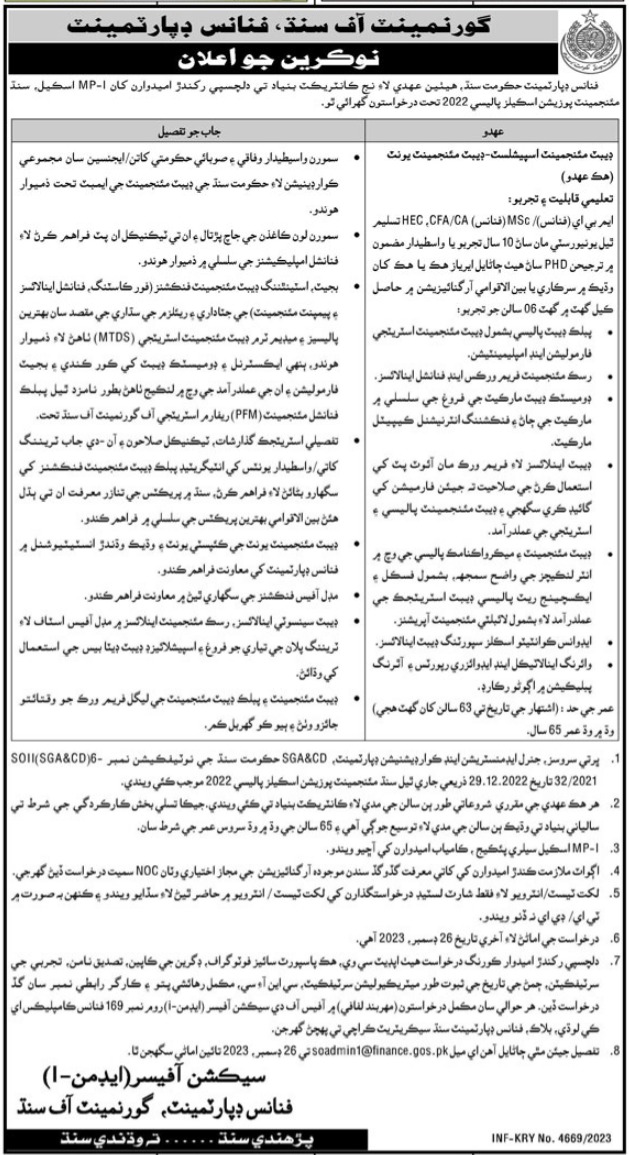 گورنمينٽ آف سنڌ، فنانس ڊپارٽمينٽ
نوڪرين جو اعلان
فنانس ڊپارٽمينٽ حڪومت سنڌ، هيٺين عهدي لاءِ نج ڪانٽريڪٽ بنياد تي دلچسپي رکندڙ اميدوارن کان MP-I اسڪيل، سنڌ
مئنجمينٽ پوزيشن اسڪيلز پاليسي 2022 تحت درخواستون گهرائي ٿو.
عهدو
ڊيبٽ مئنجمينٽ اسپيشلسٽ-ڊيبٽ مئنجمينٽ يونٽ
(هڪ عهدو)
تعليمي قابليت ۽ تجربو:
ايم بي اي (فنانس)/ MSc (فنانس) HEC, CFA/CA تسليم
ٿيل يونيورسٽي مان ساڻ 10 سال تجربو يا واسطيدار مضمون
۾ ترجيحن PHD ساڻ هيٺ ڄاڻايل ايرياز هڪ يا هڪ کان
وڌيڪ ۾ سرڪاري يا بين الاقوامي آرگنائيزيشن ۾ حاصل
ڪيل گهٽ ۾ گهٽ 06 سالن جو تجربو:
• پبلڪ ڊيبٽ پاليسي بشمول ڊيبٽ مئنجمينٽ اسٽريٽجي
فارموليشن اينڊ امپليمينٽيشن.
• رسڪ مئنجمينٽ فريم ورڪس اينڊ فنانشل اينالائسز.
• ڊوميسٽڪ ڊيبٽ مارڪيٽ جي فروغ جي سلسلي ۾
مارڪيٽ جي ڄاڻ ۽ فنڪشننگ انٽرنيشنل ڪيپيٽل
مارڪيٽ.
• ڊيبٽ اينلائسز لاءِ فريم ورڪ مان آئوٽ پٽ کي
استعمال ڪرڻ جي صلاحيت تہ جيئن فارميشن کي
گائيڊ ڪري سگهجي ۽ ڊيبٽ مئنجمينٽ پاليسي ۽
اسٽريٽجي جي عملدرآمد.
• ڊيبٽ مئنجمينٽ ۽ ميڪرواڪنامڪ پاليسي جي وچ ۾
انٽر لنڪيجز جي واضح سمجهہ، بشمول فسڪل ۽
ايڪسچينج ريٽ پاليسي ڊيبٽ اسٽريٽجڪ جي
عملدرآمد لاءِ بشمول لائبلٽي مئنجمينٽ آپريشنز.
• ايڊوانس ڪوانٽيٽو اسڪلز سپورٽنگ ڊيبٽ اينالائسز.
• وائرنگ اينالائيٽڪل اينڊ ايڊوائزري رپورٽس ۽ آئرنگ
پبليڪيشن ۾ اڳوڻو رڪارڊ.
عمر جي حد: (اشتهار جي تاريخ تي 63 سالن کان گهٽ هجي)
وڌ ۾ وڌ عمر 65 سال.
جاب جو تفصيل
• سمورن واسيطيدار وفاقي ۽ صوبائي حڪومتي کاتن/ايجنسين سان مجموعي
ڪوآرڊينيشن لاءِ حڪومت سنڌ جي ڊيبٽ مئنجمينٽ جي ايمبٽ تحت ذميوار
هوندو.
• سمورن لون ڪاغذن جي جاچ پڙتال ۽ ان تي ٽيڪنيڪل ان پٽ فراهم ڪرڻ لاءِ
فنانشل امپليڪيشنز جي سلسلي ۾ ذميوار هوندو.
• بجيٽ، اسٽينٿننگ ڊيبٽ مئنجمينٽ فنڪشنز (فورڪاسٽنگ، فنانشل اينالائسز
۽ پيمينٽ مئنجمينٽ) جي جٽاداري ۽ ريئلزم جي سڌاري جي مقصد سان بهترين
پاليسيز ۽ ميڊيم ٽرم ڊيبٽ مئنجمينٽ اسٽريٽجي (MTDS) ٺاهڻ لاءِ ذميوار
هوندو، ٻنهي ايڪسٽرنل ۽ ڊوميسٽڪ ڊيبٽ کي ڪور ڪندي ۽ بجيٽ
فارموليشن ۽ ان جي عملدرآمد جي وچ ۾ لنڪيج ٺاهڻ بطور نامزد ٿيل پبلڪ
فنانشل مئنجمينٽ (PFM) ريفارم اسٽريٽجي آف گورنمينٽ آف سنڌ تحت.
• تفصيلي اسٽريٽجڪ گذارشات، ٽيڪنيڪل صلاحون ۽ آن-دي جاب ٽريننگ
کاتي/واسطيدار يونٽس کي انٽيگريٽيڊ پبلڪ ڊيبٽ مئنجمينٽ فنڪشنز کي
سگهارو بڻائڻ لاءِ فراهم ڪرڻ، سنڌ ۾ پريڪٽس جي تناظر معرفت ان تي ٻڌل
هئڻ بين الاقوامي بهترين پريڪٽس جي سلسلي ۾ فراهم ڪندو.
• ڊيبٽ مئنجمينٽ يونٽ جي ڪئپسٽي يونٽ ۽ وڌيڪ وڌندڙ انسٽيٽيوشنل ۾
فنانس ڊپارٽمينٽ کي معاونت فراهم ڪندو.
• مڊل آفيس فنڪشنز جي سگهاري ٿيڻ ۾ معاونت فراهم ڪندو.
• ڊيبٽ سينسوٽي اينالائسز، رسڪ مئنجمينٽ اينلائسز ۾ مڊل آفيس اسٽاف لاءِ
ٽريننگ پلان جي تياري جو فروغ ۽ اسپيشلائيزڊ ڊيبٽ ڊيٽا بيس جي استعمال
کي وڌائڻ.
• ڊيبٽ مئنجمينٽ ۽ پبلڪ ڊيبٽ مئنجمينٽ جي ليگل فريم ورڪ جو وقتائتو
جائزو وٺڻ ۽ ٻيو ڪو گهربل ڪم.
1. ڀرتي سروسز، جنرل ايڊمنسٽريشن اينڊ ڪوآرڊينيشن ڊپارٽمينٽ، SGA&CD حڪومت سنڌ جي نوٽيفڪيشن نمبر SOII(SGA&CD)6-
32/2021 تاريخ 29.12.2022 ذريعي جاري ٿيل سنڌ مئنجمينٽ پوزيشن اسڪيلز پاليسي 2022 موجب ڪئي ويندي.
2. هر هڪ عهدي جي مقرري شروعاتي طور ٻن سالن جي مدي لاءِ ڪانٽريڪٽ بنياد تي ڪئي ويندي. جيڪا تسلي بخش ڪارڪردگي جي شرط تي
ساليانی بنياد تي وڌيڪ ٻن سالن جي مدي لاءِ توسيع جوڳي آهي ۽ 65 سالن جي وڌ ۾ وڌ سروس عمر جي شرط سان.
3. MP-I اسڪيل سيلري پئڪيج، ڪامياب اميدوارن کي آڇيو ويندو.
4. اڳواٽ ملازمت ڪندڙ اميدوارن کي کاتي معرفت گڏوگڏ سندن موجوده آرگنائيزيشن جي مجاز اختياري وٽان NOC سميت درخواست ڏيڻ گهرجي.
5. لکت ٽيسٽ/انٽرويو لاءِ فقط شارٽ لسٽيڊ درخواستگذارن کي لکت ٽيسٽ / انٽرويو ۾ حاضر ٿيڻ لاءِ سڏايو ويندو ۽ ڪنهن بہ صورت ۾
ٽي اي/ ڊي اي نہ ڏنو ويندو.
6. درخواست جي امانڻ لاءِ آخري تاريخ 26 ڊسمبر، 2023 آهي.
7. دلچسپي رکندڙ اميدوار ڪورنگ درخواست هيٺ اپڊيٽ سي وي، هڪ پاسپورٽ سائيز فوٽوگراف، ڊگرين جي ڪاپين، تصديق نامن، تجربي جي
سرٽيفڪيٽن، ڄمڻ جي تاريخ جي ثبوت طور ميٽريڪيوليشن سرٽيفڪيٽ، سي اين آءِ سي، مڪمل رهائشي پتو ۽ ڪارگر رابطي نمبر سان گڏ
درخواست ڏين. هر حوالي سان مڪمل درخواستون (مهربند لفافي) ۾ آفيس آف دي سيڪشن آفيسر (ايڊمن-i) روم نمبر 169 فنانس ڪامپليڪس اي
ڪي لوڌي، بلاڪ، فنانس ڊپارٽمينٽ سنڌ سيڪريٽريٽ ڪراچي تي پهچڻ گهرجن.
8. تفصيل جيئن مٿي ڄاڻايل آهن اي ميل soadmin1@finance.gos.pk تي 26 ڊسمبر، 2023 تائين اماڻي سگهجن ٿا.
سيڪشن آفيسر (ايڊمن-I)
فنانس ڊپارٽمينٽ، گورنمينٽ آف سنڌ
پڙهندي سنڌ ...... تہ وڌندي سنڌ
INF-KRY No. 4669/2023